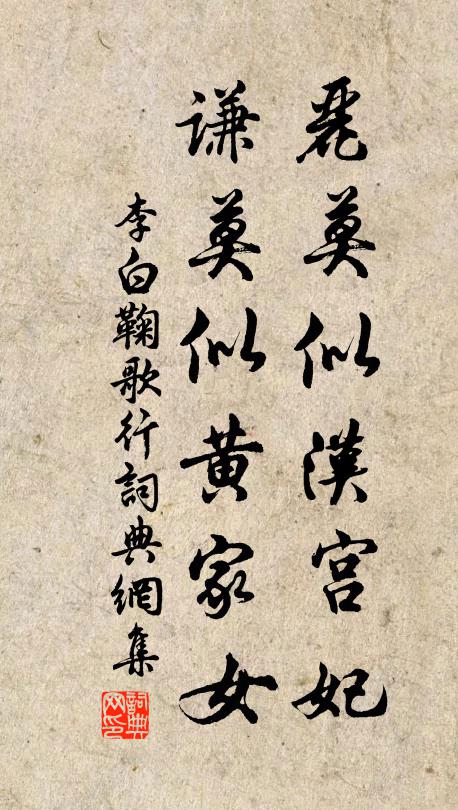 麗莫似漢宮妃
謙莫似黃家女
李白鞠歌行詞典網集
詞典
网印